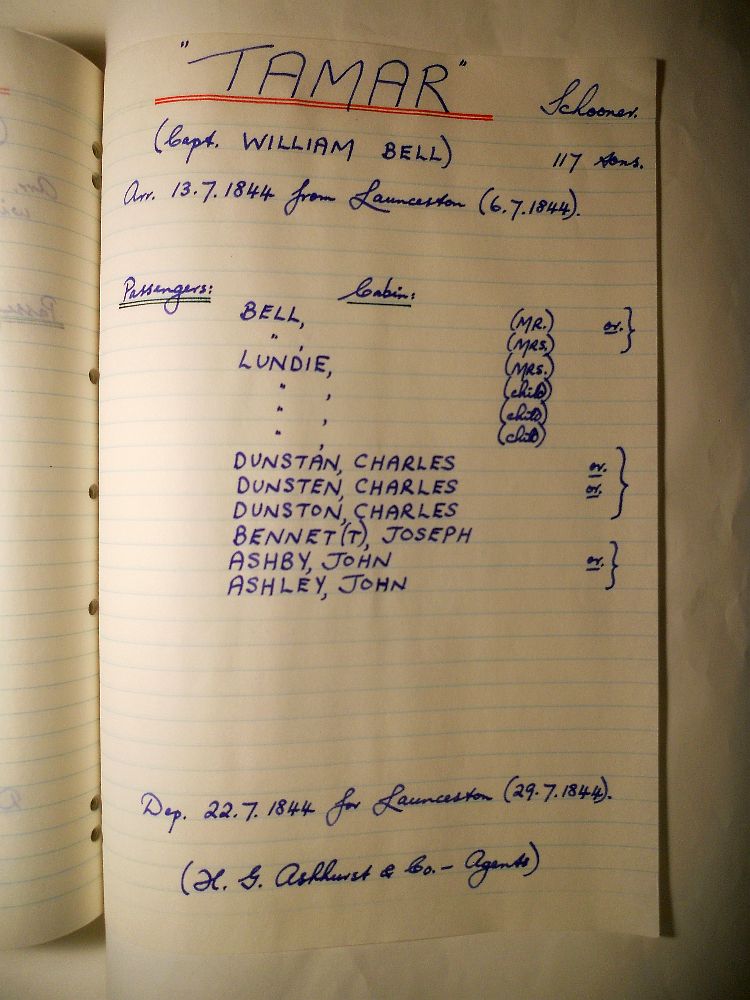 "TAMAR" Schooner.
(Capt. WILLIAM BELL) 117 tons.
Arr. 13.7.1844 from Launceston (6.7.1844).
Passengers: Cabin:
BELL, (MR.) or. }
" , (MRS.)
LUNDIE, (MRS.)
" , (child)
" , (child)
" , (child)
DUNSTAN, CHARLES or. }
DUNSTEN, CHARLES or.
DUNSTON, CHARLES
BENNET(T), JOSEPH
ASHBY, JOHN or. }
ASHLEY, JOHN
Dep. 22.7.1844 for Launceston (29.7.1844).
(H. G. Ashhurst & Co. - Agents)